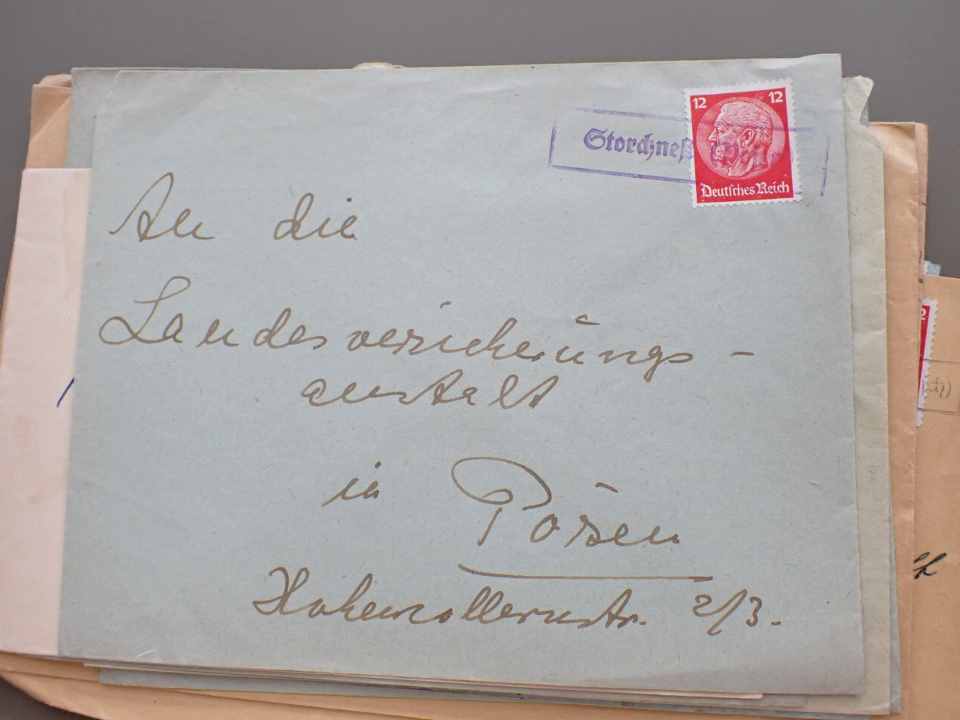 12 12
Storchneß
Deutsches Reich
An die
Landesversicherungs-
anstalt
in Posen
Hohenzollernstr. 2/3.